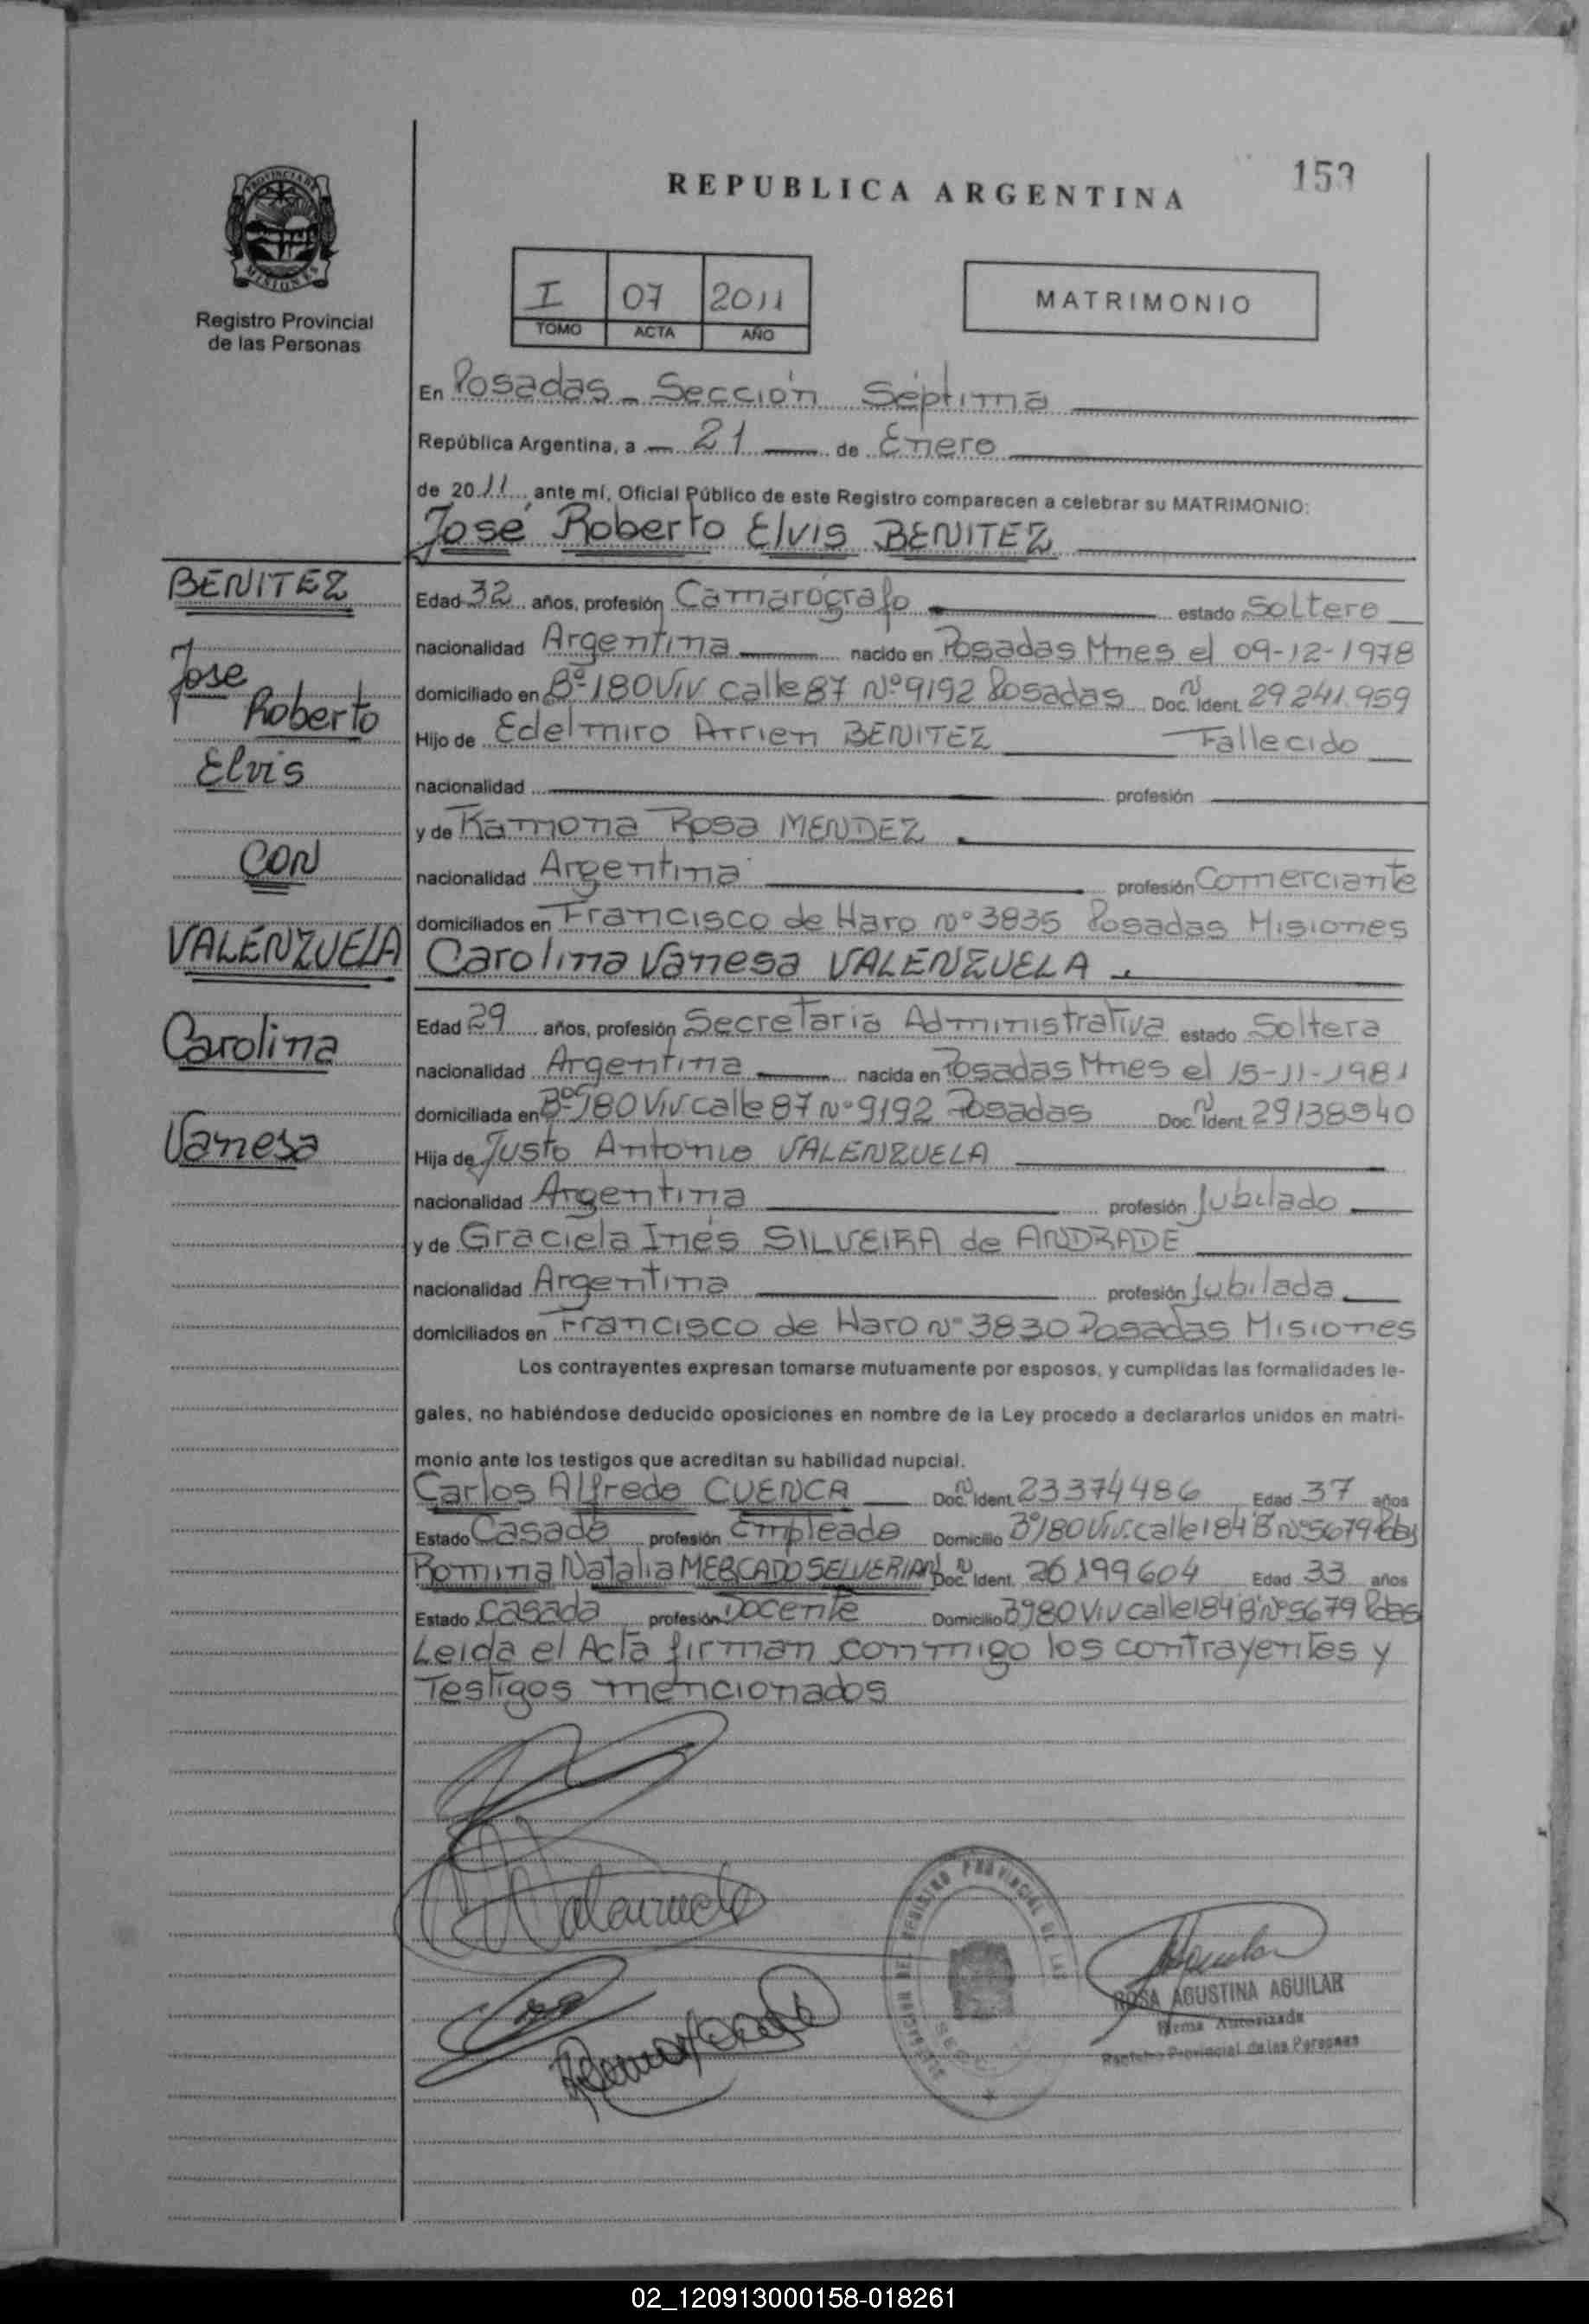 153
REPUBLICA ARGENTINA
PROVINCIA DE MISIONES
Registro Provincial
de las Personas
I 07 2011
TOMO ACTA AÑO
MATRIMONIO
En Posadas - Sección Séptima
República Argentina, a 21 de Enero
de 2011, ante mí, Oficial Público de este Registro comparecen a celebrar su MATRIMONIO:
José Roberto Elvis BENITEZ
BENITEZ
Jose
Roberto
Elvis
CON
VALENZUELA
Carolina
Vanesa
Edad 32 años, profesión Camarógrafo estado Soltero
nacionalidad Argentina nacido en Posadas Mnes el 09-12-1978
domiciliado en Bº 180 Viv calle 87 Nº 9192 Posadas Doc. N Ident. 29241.959
Hijo de Edelmiro Arrien BENITEZ Fallecido
nacionalidad profesión
y de Ramona Rosa MENDEZ
nacionalidad Argentina profesión Comerciante
domiciliados en Francisco de Haro nº 3835 Posadas Misiones
Carolina Vanesa VALENZUELA
Edad 29 años, profesión Secretaria Administrativa estado Soltera
nacionalidad Argentina nacida en Posadas Mnes el 15-11-1981
domiciliada en Bº 180 Viv calle 87 nº 9192 Posadas Doc. N Ident. 29138940
Hija de Justo Antonio VALENZUELA
nacionalidad Argentina profesión Jubilado
y de Graciela Inés SILVEIRA de ANDRADE
nacionalidad Argentina profesión Jubilada
domiciliados en Francisco de Haro nº 3830 Posadas Misiones
Los contrayentes expresan tomarse mutuamente por esposos, y cumplidas las formalidades le-
gales, no habiéndose deducido oposiciones en nombre de la Ley procedo a declararlos unidos en matri-
monio ante los testigos que acreditan su habilidad nupcial.
Carlos Alfredo CUENCA Doc. N Ident. 23374486 Edad 37 años
Estado Casado profesión Empleado Domicilio Bº 180 Viv. calle 184 B Nº 5679 Pdas
Romina Natalia MERCADO SELVERIAN Doc. N Ident. 26199604 Edad 33 años
Estado Casada profesión Docente Domicilio Viv calle 184 B Nº 5679 Pdas
Leida el Acta firman conmigo los contrayentes y
Testigos mencionados
Valenzuela
REGISTRO PROVINCIAL DE LAS
ROSA AGUSTINA AGUILAR
Firma Autorizada
Registro Provincial de las Personas
02_120913000158-018261